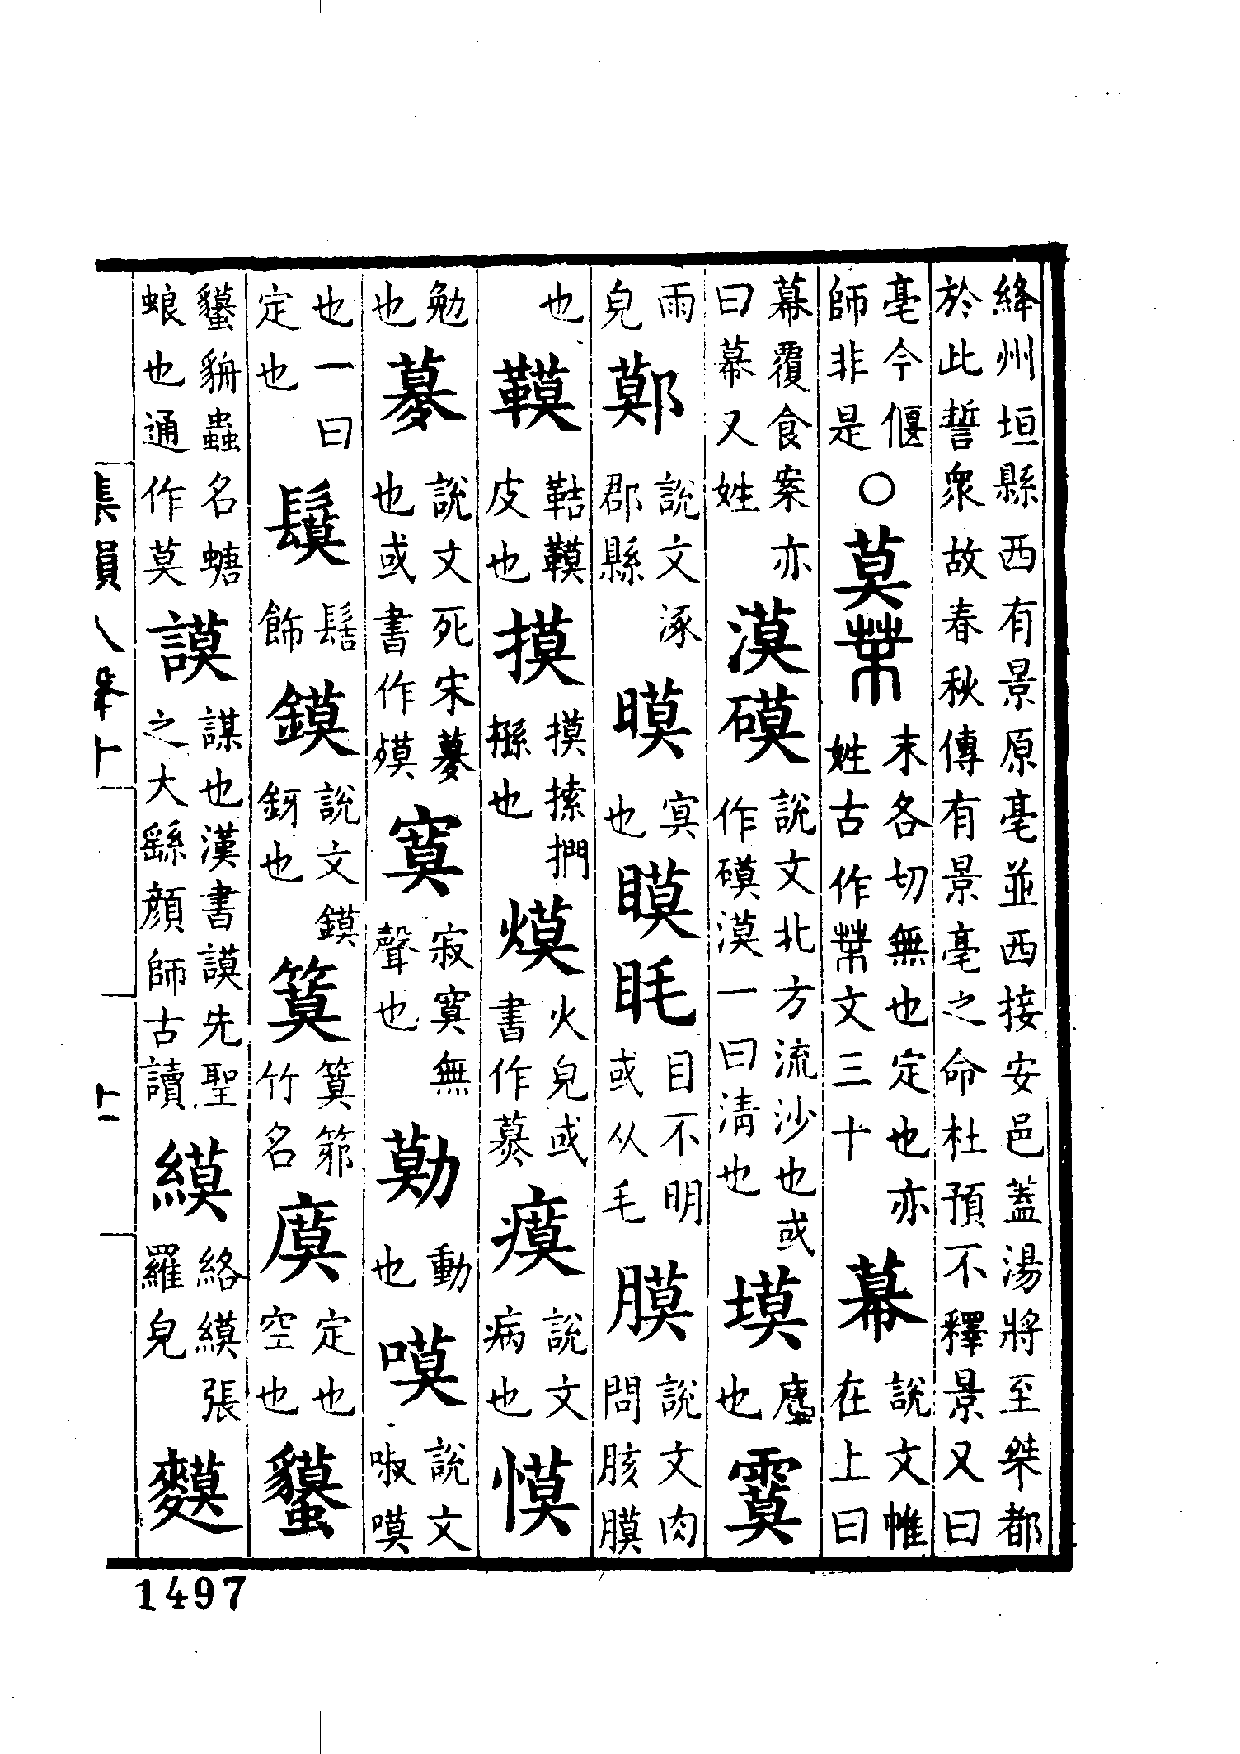 絳州垣縣西有景原亳並西接安邑蓋湯將至桀都
於此誓衆故春秋傳有景亳之命杜預不釋景又曰
亳今偃
師非是○莫𦱤
末各切無也定也亦
姓古作𦱤文三十
幕
說文帷
在上曰
幕覆食案亦
曰幕又姓
漠磺
說文北方流沙也或
作磺漠一曰清也
塻
塵
也
䨫
雨
皃
鄚
說文涿
郡縣
暯
冥
也
瞙眊
目不明
或从毛
膜
說文肉
間胲膜
也
鞹
鞊鞹
皮也
摸
摸搎捫
搎也
熯
火皃或
書作蓦
瘼
說文
病也
慔
勉
也
蓦
說文死宋蓦
也或書作𣩎
寞
寂寞無
聲也
勱
動
也
嗼
說文
㖡嗼
也一曰
定也
鬕
髻
飾
鏌
說文鏌
釾也
䈿
䈿䈞
竹名
㢑
定也
空也
貘
貘䝧蟲名螗
蜋也通作莫
謨
謀也漢書謨先聖
之大繇顏師古讀
縸
絡縸張
羅皃
䴲
集韻入聲十
十一
1497